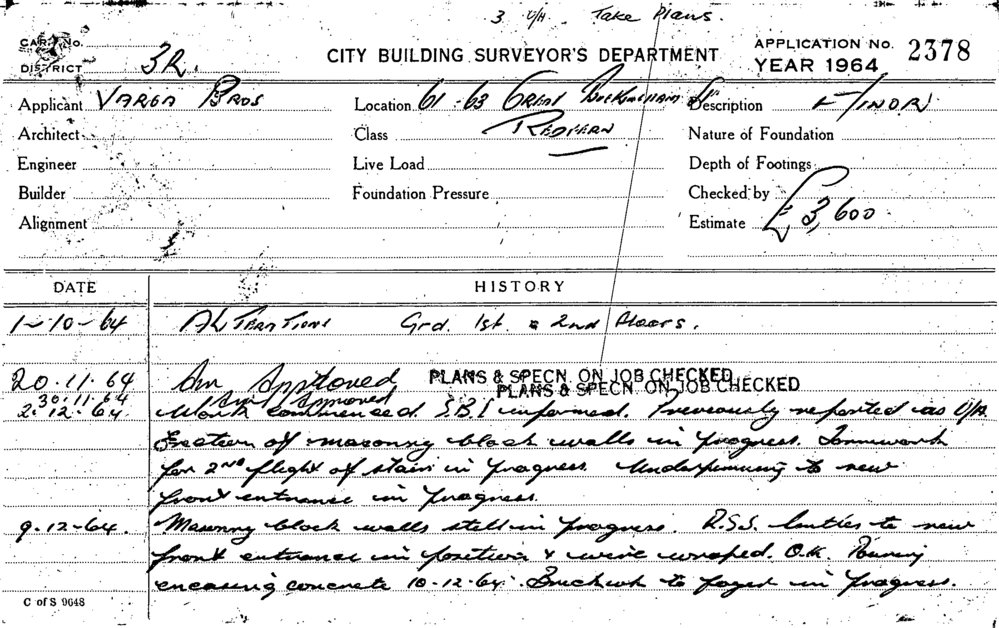 3 U/H. Take Plans.
CARD No.
DISTRICT 3R.
CITY BUILDING SURVEYOR'S DEPARTMENT
APPLICATION No. 2378
YEAR 1964
Applicant VARGA BROS
Location 61-63 GREAT BUCKINGHAM ST
Description MINOR
Architect
Class REDFERN
Nature of Foundation
Engineer
Live Load
Depth of Footings
Builder
Foundation Pressure
Checked by
Alignment
Estimate £3,600
DATE HISTORY
1-10-64 ALTERATIONS Grd. 1st. & 2nd Floors.
20.11.64 Am Approved PLANS & SPECN. ON JOB CHECKED
30.11.64 Am Approved PLANS & SPECN. ON JOB CHECKED
2.12.64. Work commenced. S.B.I informed. Previously reported as U/H.
Erection of masonry block walls in progress. Formwork
for 2ND flight of stairs in progress. Underpinning to new
front entrance in progress.
9.12-64. Masonry block walls still in progress. R.S.S. lintles to new
front entrance in position & wire wraped. O.K. Pouring
encasing concrete 10-12-64. Brickwork to façade in progress.
C of S 9648